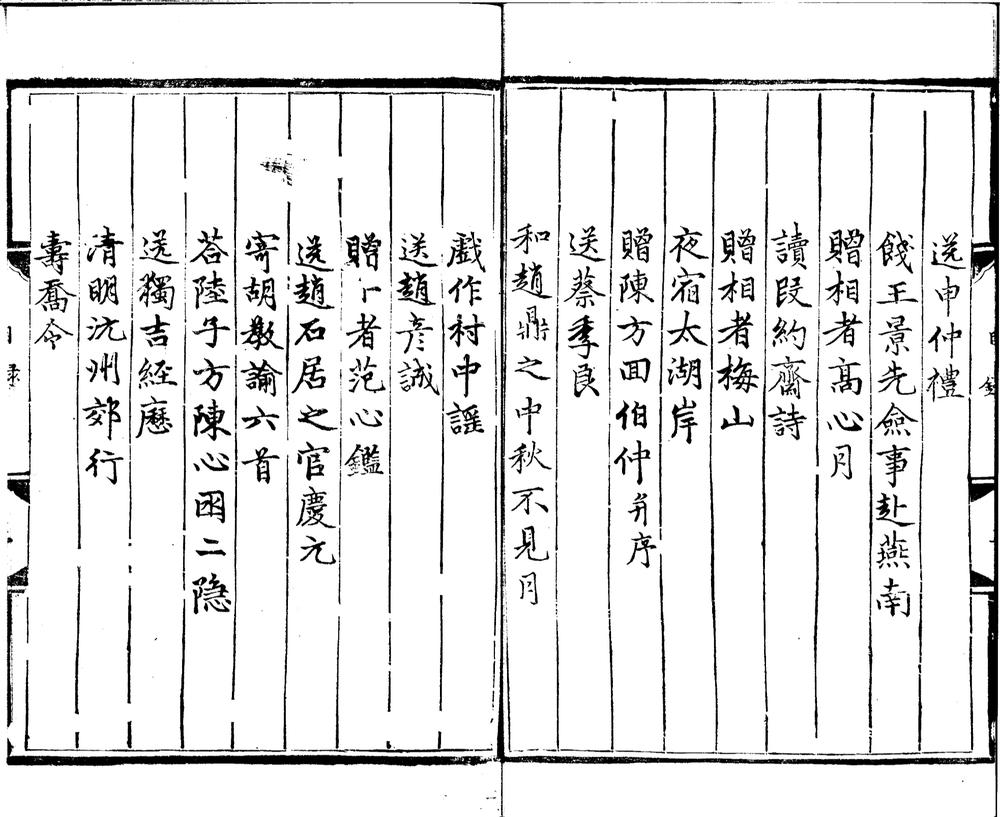 目錄
送申仲禮
餞王景先僉事赴燕南
贈相者高心月
讀段約齋詩
贈相者梅山
夜宿太湖岸
贈陳方囬伯仲并序
送蔡季良
和趙鼎之中秋不見月
戲作村中謡
送趙彦誠
贈卜者范心鑑
送趙石居之官慶元
寄胡敎諭六首
荅陸子方陳心困二隐
送獨吉経歷
清明沅州郊行
壽喬令
目錄